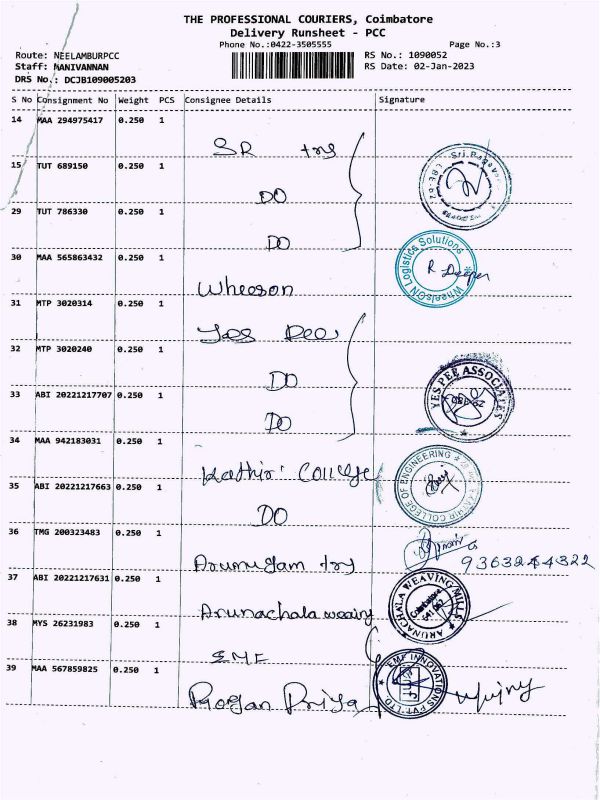 THE PROFESSIONAL COURIERS, Coimbatore
Delivery Runsheet - PCC
Phone No.:0422-3505555 Page No.:3
Route: NEELAMBURPCC RS No.: 1090052
Staff: MANIVANNAN RS Date: 02-Jan-2023
DRS No.: DCJB109005203
S No Consignment No Weight PCS Consignee Details Signature
14 MAA 294975417 0.250 1
SR
15 TUT 689150 0.250 1
DO
29 TUT 786330 0.250 1
DO
30 MAA 565863432 0.250 1
Wheeson
WheelsON Logistics Solutions
R Deepan
31 MTP 3020314 0.250 1
32 MTP 3020240 0.250 1
DO
33 ABI 20221217707 0.250 1
DO
YES PEE ASSOCIATES
34 MAA 942183031 0.250 1
Kathir College
COLLEGE OF ENGINEERING
35 ABI 20221217663 0.250 1
DO
36 TMG 200323483 0.250 1
Arumugam try
37 ABI 20221217631 0.250 1
Arunachala weaing
ARUNACHALA WEAVING MILLS
Coimbatore
641 062
38 MYS 26231983 0.250 1
EMF
39 MAA 567859825 0.250 1
EMF INNOVATIONS PVT LTD